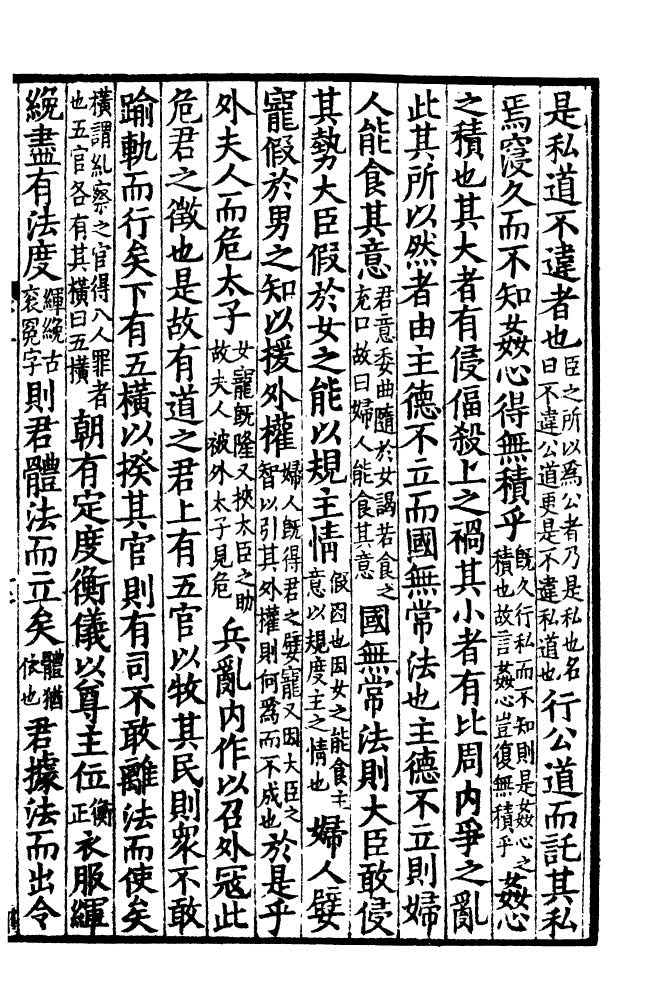 是私道不違者也臣之所以爲公者乃是私也名曰不違公道更是不違私道也行公道而託其私
焉寖久而不知姦心得無積乎旣久行私而不知則是姦心之積也故言姦心豈復無積乎姦心
之積也其大者有侵偪殺上之禍其小者有比周内爭之亂
此其所以然者由主德不立而國無常法也主德不立則婦
人能食其意君意委曲隨於女謁若食之充口故曰婦人能食其意國無常法則大臣敢侵
其勢大臣假於女之能以規主情假因也因女之能食主意以規度主之情也婦人嬖
寵假於男之知以援外權婦人旣得君之嬖寵又因大臣之智以引其外權則何爲而不成也於是乎
外夫人而危太子女寵旣隆又挾大臣之助故夫人被外太子見危兵亂内作以召外寇此
危君之徵也是故有道之君上有五官以牧其民則衆不敢
踰軌而行矣下有五橫以揆其官則有司不敢離法而使矣
橫謂糺察之官得入人罪者也五官各有其橫曰五橫朝有定度衡儀以尊主位衡正衣服緷
絻盡有法度緷絻古衮冕字則君體法而立矣體猶依也君據法而出令